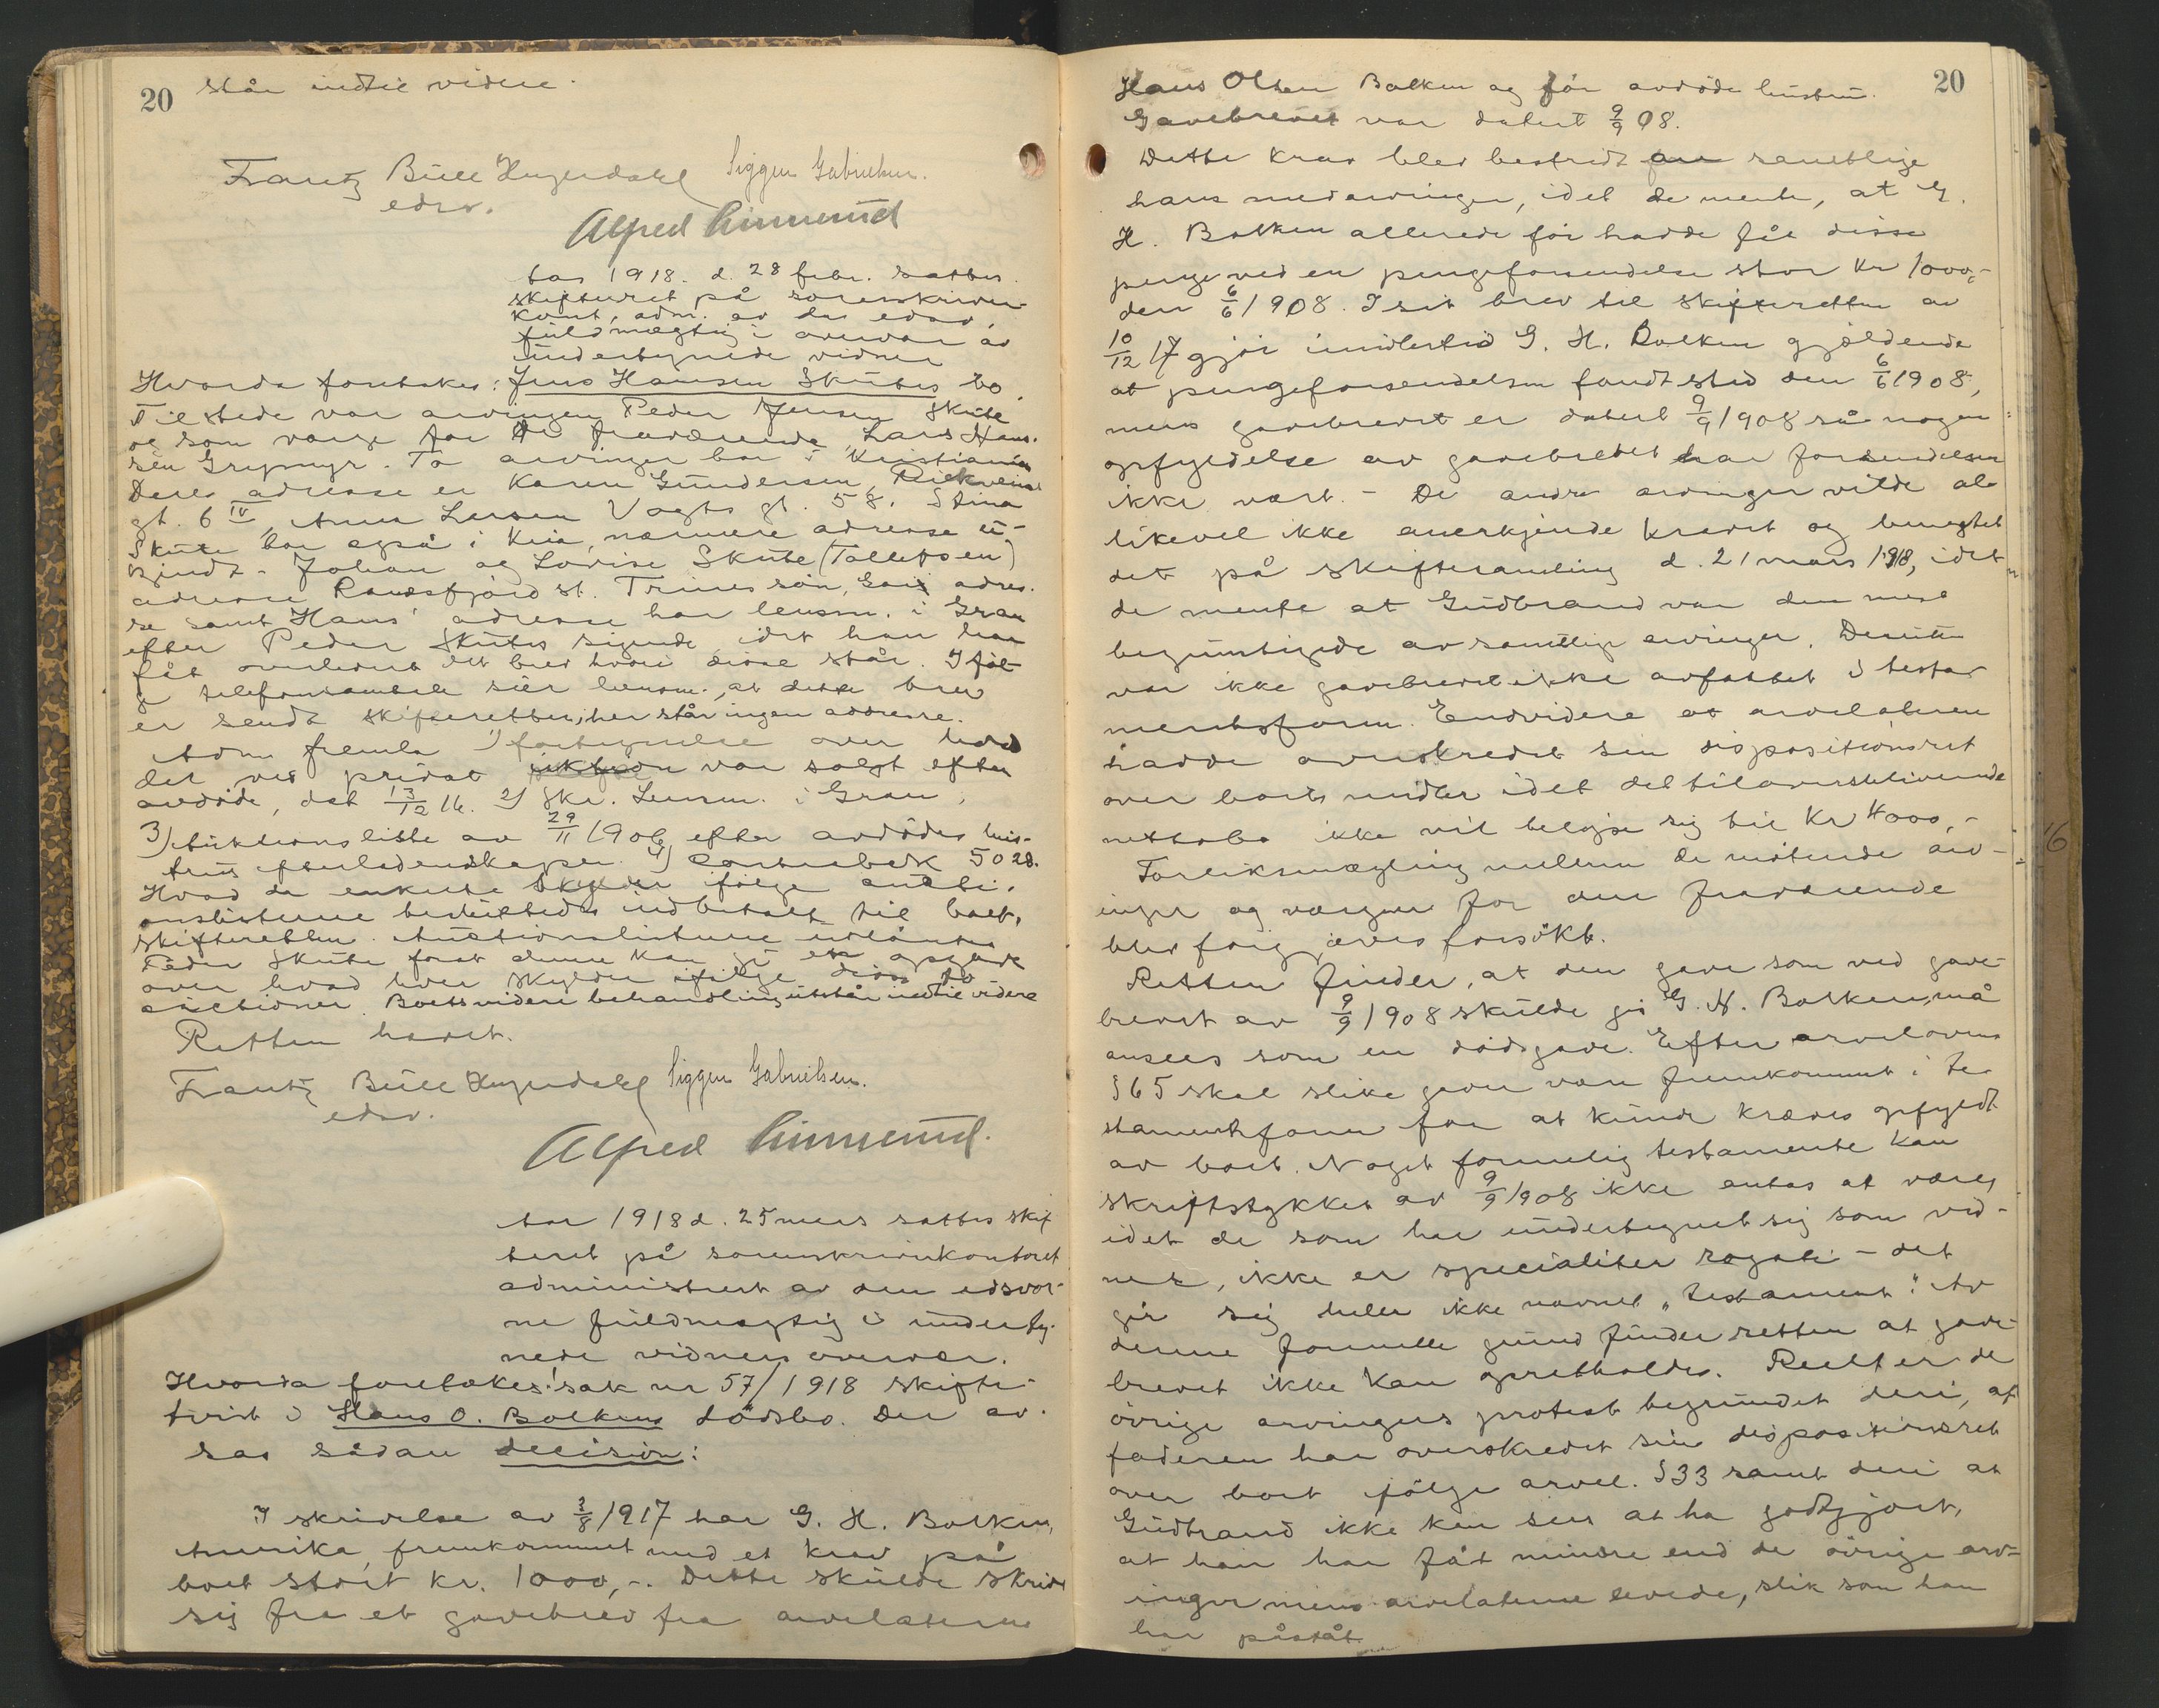 20
står indtil videre.
Frantz Bull Hugerdahl Sigger Gabrielsen.
edsv.
Alfred Linnerud
Aar 1918. d. 28 febr. sattes
skifteret på sorenskriver-
kont., adm. av den edsv.
fuldmægtig i overvær av
undertegnede vidner
Hvorda foretokes: Jens Hansen Skutes bo.
Tilstede var arvingen Peder Jensen Skute
og som verge for de fraværende Lars Han-
sen Grymyr. To arvinger bor i Kristiania
Deres adresse er Karen Gundersen,
gt. 6 IV, Anna Larsen Vogts gt. 58. Stina
Skute bor også i Kria, nærmere adresse u-
kjendt. Johan og Lovise Skute (Tollefsen)
adresse Randsfjord st. Trines søn, adres-
se samt Hans' adresse har lensm. i Gran
efter Peder Skutes sigende, idet han har
fåt overlevert et brev hvori disse står. Iføl-
ge telefonsamtale sier lensm., at dette brev
er sendt skifteretten; her står ingen addresse.
Adm. fremla 1) fortegnelse over hvad
der ved privat auktion var solgt efter
avdøde, dat 13/12 16. 2) Skr. Lensm. i Gran,
3) Auktionsliste av 29/11 1906 efter avdødes hus-
trus efterladenskaper. 4) Contrabok 5028.
Hvad de enkelte skylder ifølge aukti-
onslisterne besluttedes indbetalt til boet,
skifteretten. Auctionslisterne utlåntes
Peder Skute forat denne kan gi en opgave
over hvad hver skylder ifølge disse to
auctioner. Boets videre behandling utstår indtil videre
Retten hævet.
Frantz Bull Hugerdahl Sigger Gabrielsen.
edsv.
Alfred Linnerud.
Aar 1918 d. 25 mars sattes skif
teret på sorenskriverkontoret
administrert av den edsvor-
ne fuldmægtig i underteg-
nede vidners overvær.
Hvorda foretokes: sak nr 57/1918 skifte-
tvist i Hans O. Bolkens dødsbo. Der av-
sas sådan decision:
I skrivelse av 2/8 1917 har G. H. Bolken,
Amerika, fremkommet med et krav på
boet stort kr. 1000,-. Dette skulde skrive
sig fra et gavebrev fra arvelateren
20
Hans Olsen Bolken og før avdøde hustru.
Gavebrevet var datert 9/9 08.
Dette krav blev bestridt av samtlige
hans medarvinger, idet de mente, at G.
H. Bolken allerede før hadde fåt disse
penge ved en pengeforsendelse stor kr 1000,-
den 6/6 1908. I sit brev til skifteretten av
10/12 17 gjør imidlertid G. H. Bolken gjældende
at pengeforsendelsen fandt sted den 6/6 1908,
mens gavebrevet er datert 9/9 1908 så nogen
opfyldelse av gavebrevet har forsendelsen
ikke vært. - De andre arvinger vilde al-
likevel ikke anerkjende kravet og benegtet
det på skiftesamling d. 21 mars 1918, idet
de mente at Gudbrand var den mest
begunstigede av samtlige arvinger. Desuten
var ikke gavebrevet ikke avfattet i testa-
mentsform. Endvidere at arvelateren
hadde overskredet sin dispositionsret
over boets midler idet det tiloversblivende
nettobo ikke vil beløpe sig til kr 4000,-
Forliksmægling mellem de møtende arv-
inger og vergen for den fraværende
blev forgjæves forsøkt.
Retten finder, at den gave som ved gave-
brevet av 9/9 1908 skulde gis G. H. Bolken, må
ansees som en dødsgave. Efter arvelovens
§ 65 skal slike gaver være fremkommet i te-
stamentsform for at kunde kræves opfyldt
av boet. Noget formelig testamente kan
skriftstykket av 9/9 1908 ikke antas at være,
idet de som har undertegnet sig som vid-
ner, ikke er specialiter rogati - det
gir sig heller ikke navnet "testament". Av
denne formelle grund finder retten at gave-
brevet ikke kan opretholdes. Reelt er de
øvrige arvingers protest begrundet deri, at
faderen har overskredet sin dispositionsret
over boet ifølge arvel. § 33 samt deri at
Gudbrand ikke kan sees at ha godtgjort,
at han har fåt mindre end de øvrige arv-
inger mens arvelaterne levede, slik som han
har påståt.